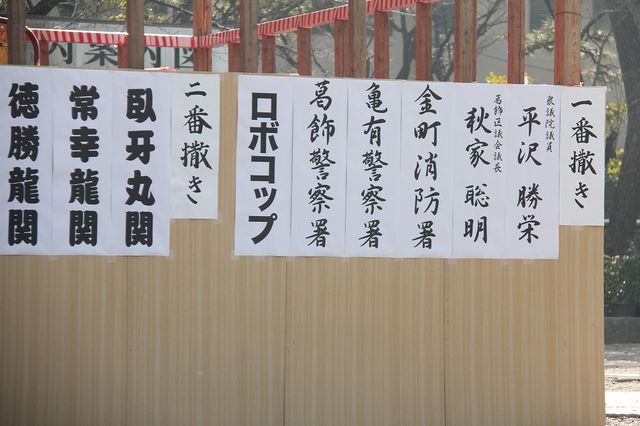 一番撒き
衆議院議員
平沢 勝栄
葛飾区議会議長
秋家 聡明
金町消防署
亀有警察署
葛飾警察署
ロボコップ
二番撒き
臥牙丸関
常幸龍関
徳勝龍関